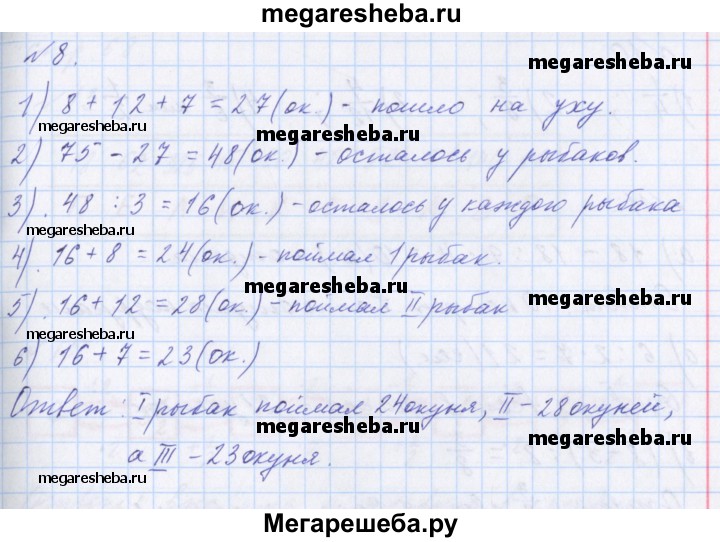 megaresheba.ru
№8.
megaresheba.ru
1) 8 + 12 + 7 = 27 (ок.) - пошло на уху.
megaresheba.ru
megaresheba.ru
2) 75 - 27 = 48 (ок.) - осталось у рыбаков.
megaresheba.ru
3). 48 : 3 = 16 (ок.) - осталось у каждого рыбака
megaresheba.ru
4). 16 + 8 = 24 (ок.) - поймал 1 рыбак.
megaresheba.ru
megaresheba.ru
5). 16 + 12 = 28 (ок.) - поймал II рыбак
megaresheba.ru
6) 16 + 7 = 23 (ок.)
Ответ: I рыбак поймал 24 окуня, II - 28 окуней,
megaresheba.ru
а III - 23 окуня.
megaresheba.ru
megaresheba.ru
Мегарешеба.ру